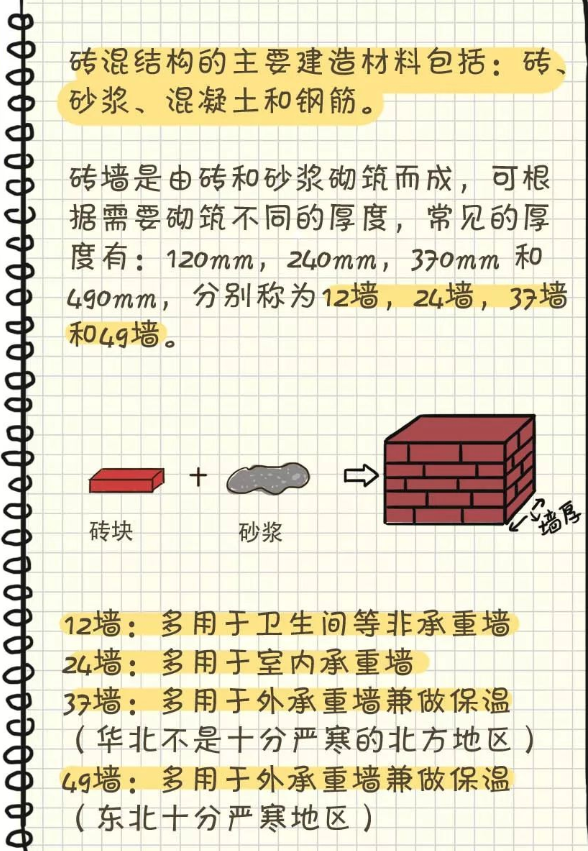 砖混结构的主要建造材料包括：砖、
砂浆、混凝土和钢筋。
砖墙是由砖和砂浆砌筑而成，可根
据需要砌筑不同的厚度，常见的厚
度有：120mm，240mm，370mm 和
490mm，分别称为12墙，24墙，37墙
和49墙。
+
砖块
砂浆
墙厚
12墙：多用于卫生间等非承重墙
24墙：多用于室内承重墙
37墙：多用于外承重墙兼做保温
（华北不是十分严寒的北方地区）
49墙：多用于外承重墙兼做保温
（东北十分严寒地区）